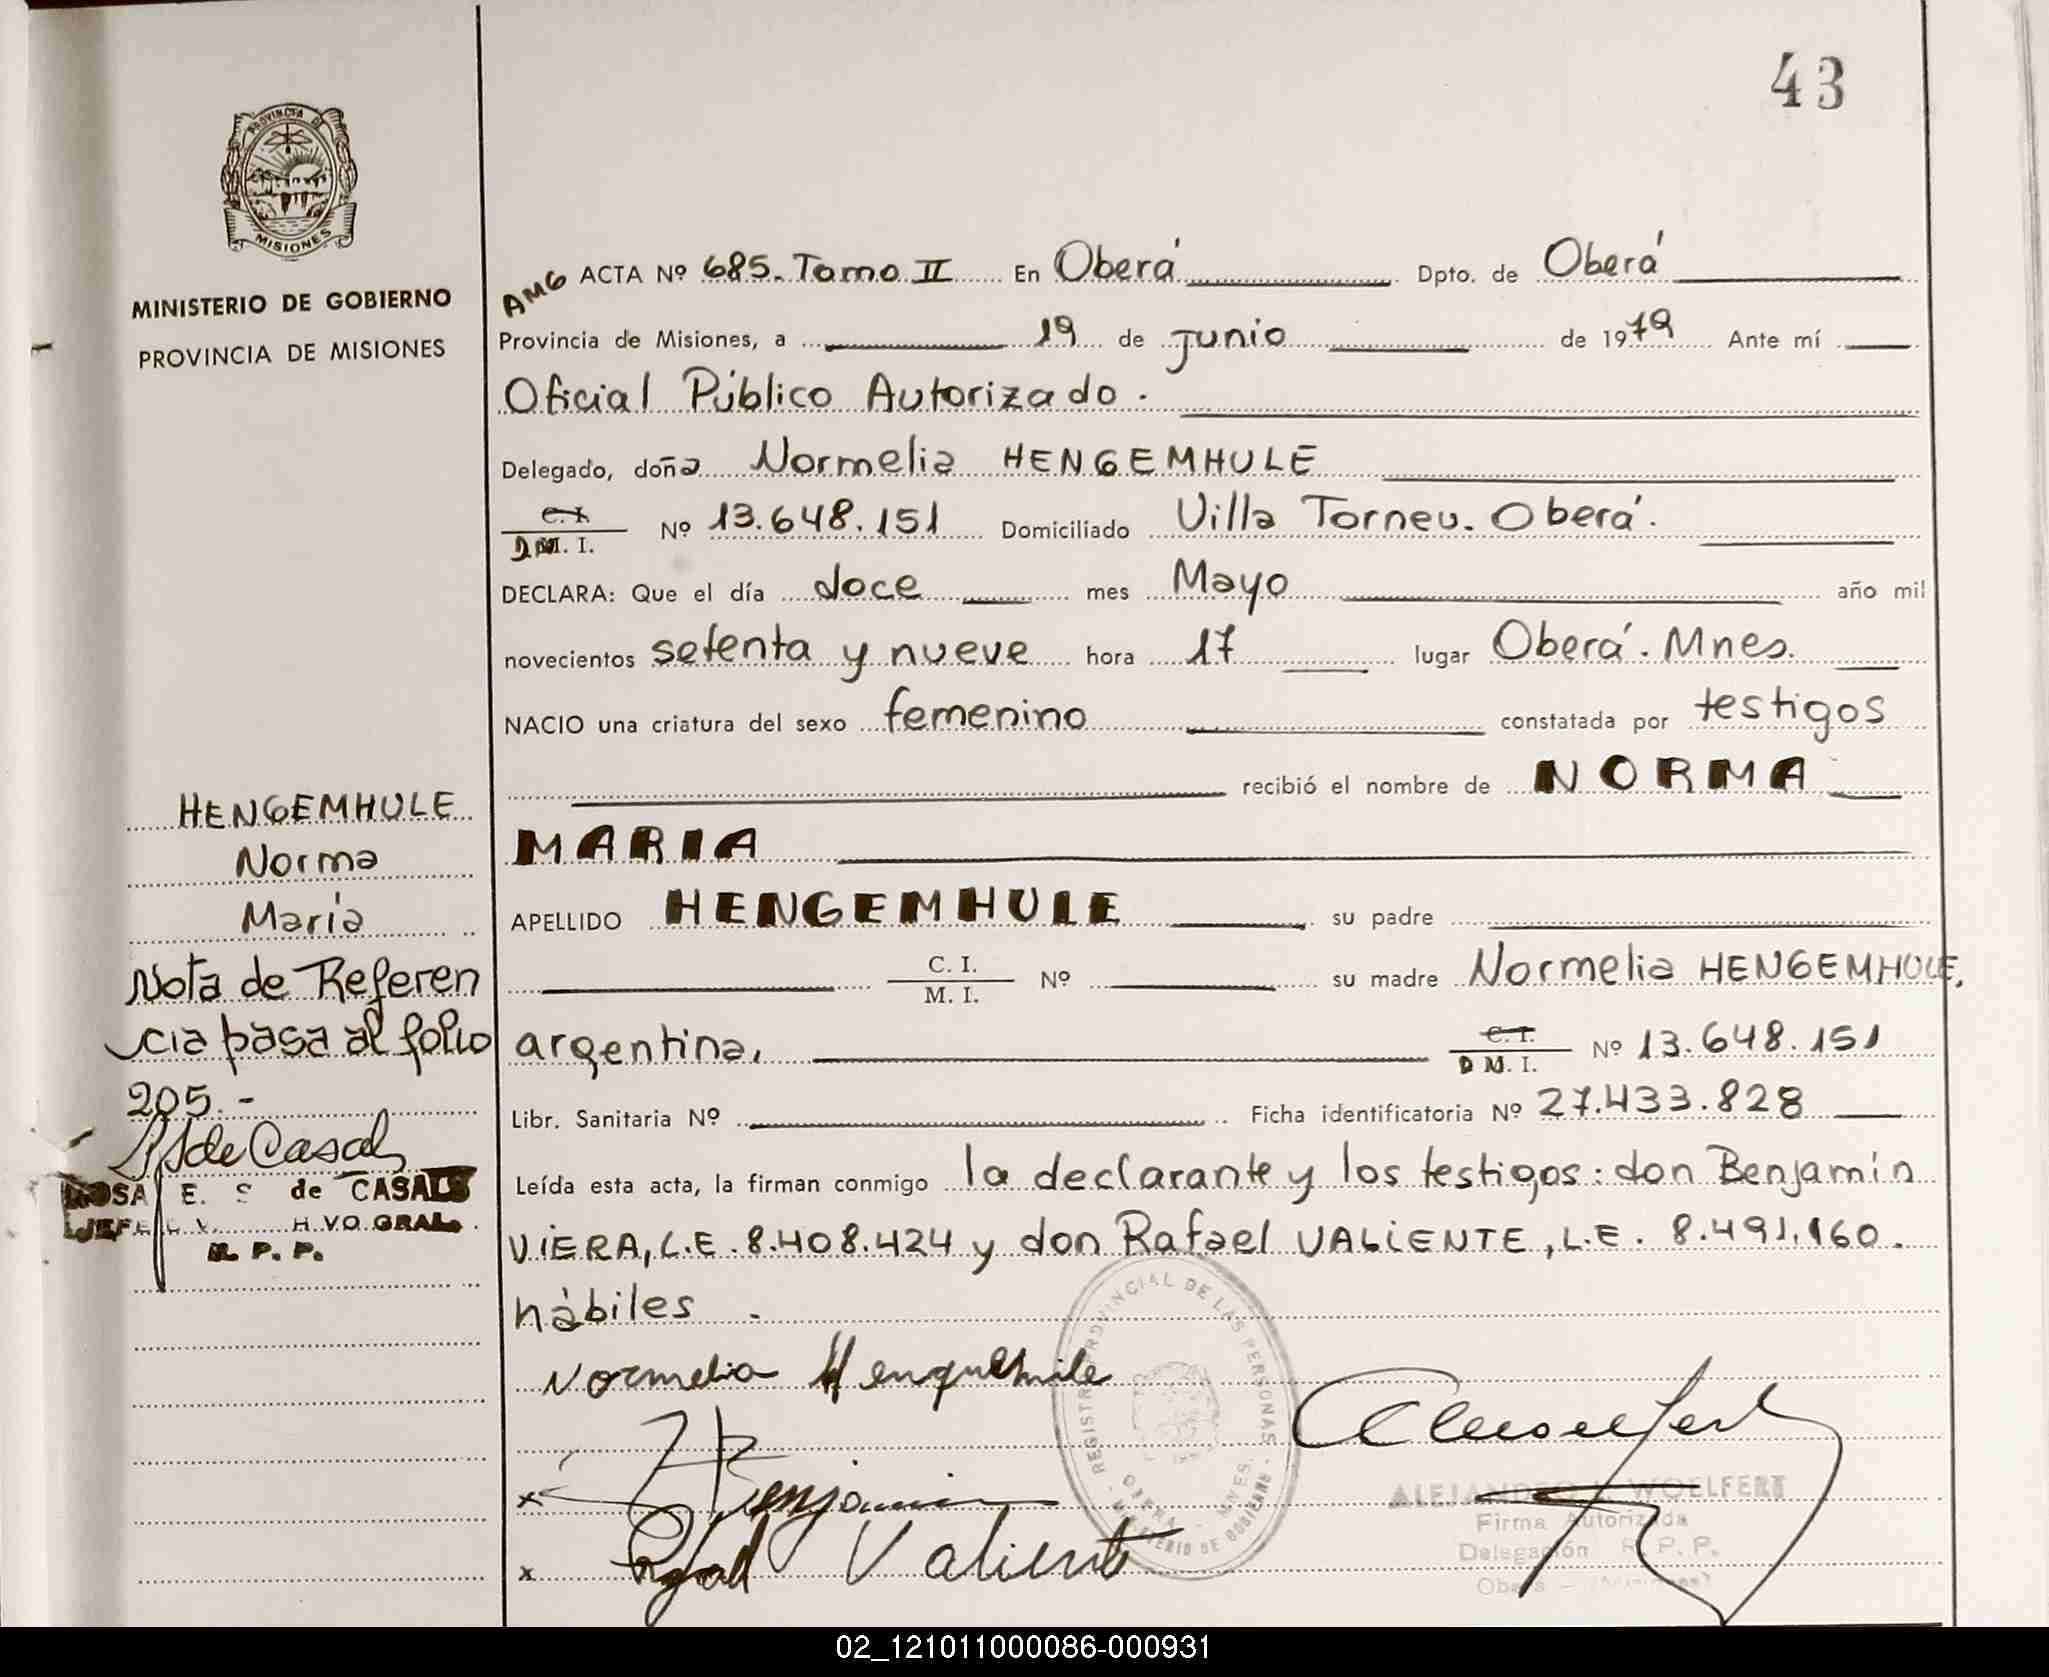 43
PROVINCIA DE
MISIONES
MINISTERIO DE GOBIERNO
PROVINCIA DE MISIONES
AMG ACTA Nº 685. Tomo II En Oberá Dpto. de Oberá
Provincia de Misiones, a 19 de Junio de 1979 Ante mí
Oficial Público Autorizado.
Delegado, doña Normelia HENGEMHULE
C. I.
D M. I. Nº 13.648.151 Domiciliado Villa Torneu. Oberá.
DECLARA: Que el día doce mes Mayo año mil
novecientos setenta y nueve hora 17 lugar Oberá. Mnes.
NACIO una criatura del sexo femenino constatada por testigos
recibió el nombre de NORMA
MARIA
APELLIDO HENGEMHULE su padre
C. I.
M. I. Nº su madre Normelia HENGEMHULE,
argentina, C. I.
D M. I. Nº 13.648.151
Libr. Sanitaria Nº Ficha identificatoria Nº 27.433.828
Leída esta acta, la firman conmigo la declarante y los testigos: don Benjamín
VIERA, L.E. 8.408.424 y don Rafael VALIENTE, L.E. 8.491.160.
hábiles.
HENGEMHULE
Norma
María
Nota de Referen
cia pasa al folio
205.-
de Casals
ROSA E. S. de CASALS
JEFE
R. P. P.
Normelia
Benjamin
x
x Rafael Valiente
REGISTRO PROVINCIAL DE LAS PERSONAS
OBERA - MNES.
MINISTERIO DE GOBIERNO
ALEJANDRO WOELFERT
Firma Autorizada
Delegación R. P. P.
Oberá - (Misiones)
02_121011000086-000931